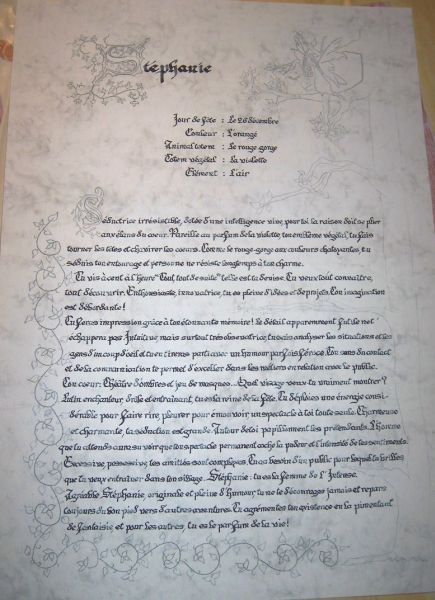 Stéphanie
Jour de fête : Le 26 décembre
Couleur : L'orangé
Animal totem : Le rouge gorge
Totem végétal : La violette
Elément : L'air
Séductrice irrésistible, dotée d'une intelligence vive, pour toi la raison doit se plier
aux élans du coeur. Pareille au parfum de la violette, ton emblème végétal, tu fais
tourner les têtes et chavirer les coeurs. Comme le rouge-gorge aux couleurs chatoyantes, tu
séduis ton entourage et personne ne résiste longtemps à ton charme.
Tu vis à cent à l'heure "tout, tout de suite" telle est ta devise. Tu veux tout connaître,
tout découvrir. Enthousiaste, innovatrice, tu es pleine d'idées et de projets. Ton imagination
est débordante !
Tu feras impression grâce à ton étonnante mémoire ! le détail apparemment futile ne t'
échappera pas. Intuitive mais surtout très observatrice, tu sais analyser les situations et les
gens d'un coup d'oeil et tu en tireras parti avec un humour parfois féroce. Ton sens du contact
et de la communication te permet d'exceller dans les métiers en relation avec le public.
Ton coeur : Théâtre d'ombres et jeu de masques... Quel visage veux tu vraiment montrer ?
Lutin enchanteur, drôle et entraînant, tu es la reine de la fête. Tu déploies une énergie consi-
dérable pour faire rire, pleurer pour émouvoir, un spectacle à toi toute seule. Charmeuse
et charmante, ta séduction est grande. Autour de toi papillonnent les prétendants. L'homme
que tu attends saura voir que ton spectacle permanent cache la pudeur et l'intensité de tes sentiments.
Excessive, possessive, tes amitiés sont complexes. Tu as besoin d'un public pour lequel tu brilles
que tu veux entraîner dans ton sillage. Stéphanie : tu es la femme de l'Intense.
Agréable Stéphanie, originale et pleine d'humour, tu ne te décourages jamais et repars
toujours du bon pied vers d'autres aventures. Tu agrémentes ton existence en la pimentant
de fantaisie et pour les autres, tu es le parfum de la vie !